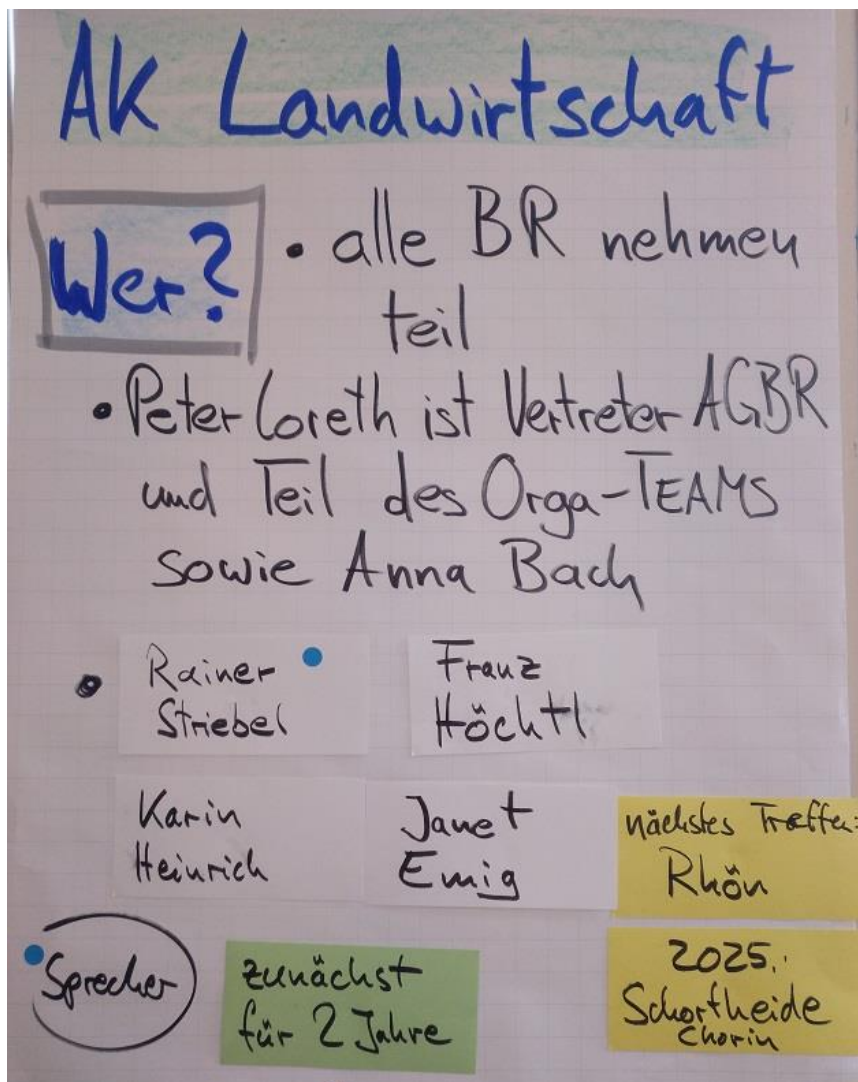 AK Landwirtschaft
Wer?
• alle BR nehmen
teil
• Peter Loreth ist Vertreter AGBR
und Teil des Orga-TEAMS
sowie Anna Bach
• Rainer
Striebel
Franz
Höchtl
Karin
Heinrich
Janet
Emig
nächstes Treffen:
Rhön
Sprecher
zunächst
für 2 Jahre
2025:
Schorfheide
Chorin